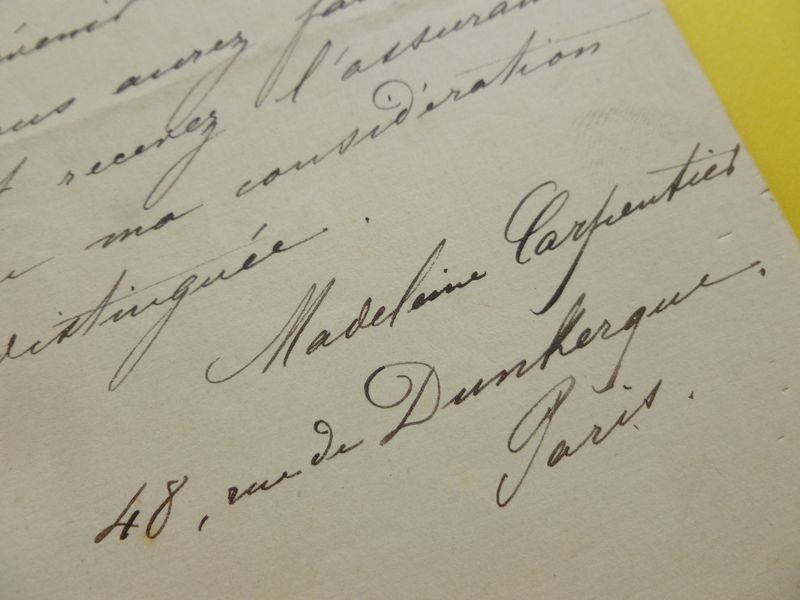 aurez
recevez l'assuran
ma considération
distinguée.
Madeleine Carpentier
48, rue de Dunkerque.
Paris.